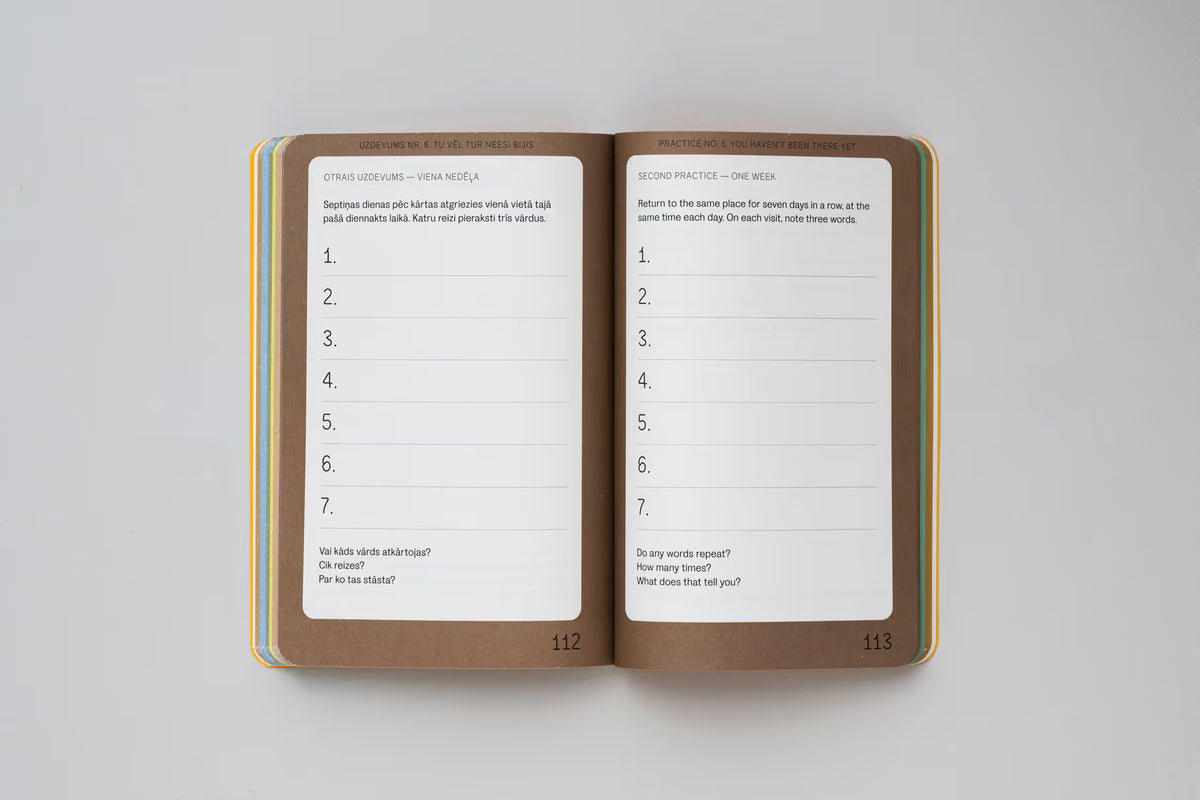 UZDEVUMS NR. 6. TU VĒL TUR NEESI BIJIS
OTRAIS UZDEVUMS — VIENA NEDĒĻA
Septiņas dienas pēc kārtas atgriezies vienā vietā tajā
pašā diennakts laikā. Katru reizi pieraksti trīs vārdus.
1.
2.
3.
4.
5.
6.
7.
Vai kāds vārds atkārtojas?
Cik reizes?
Par ko tas stāsta?
112
PRACTICE NO. 6. YOU HAVEN'T BEEN THERE YET
SECOND PRACTICE — ONE WEEK
Return to the same place for seven days in a row, at the
same time each day. On each visit, note three words.
1.
2.
3.
4.
5.
6.
7.
Do any words repeat?
How many times?
What does that tell you?
113